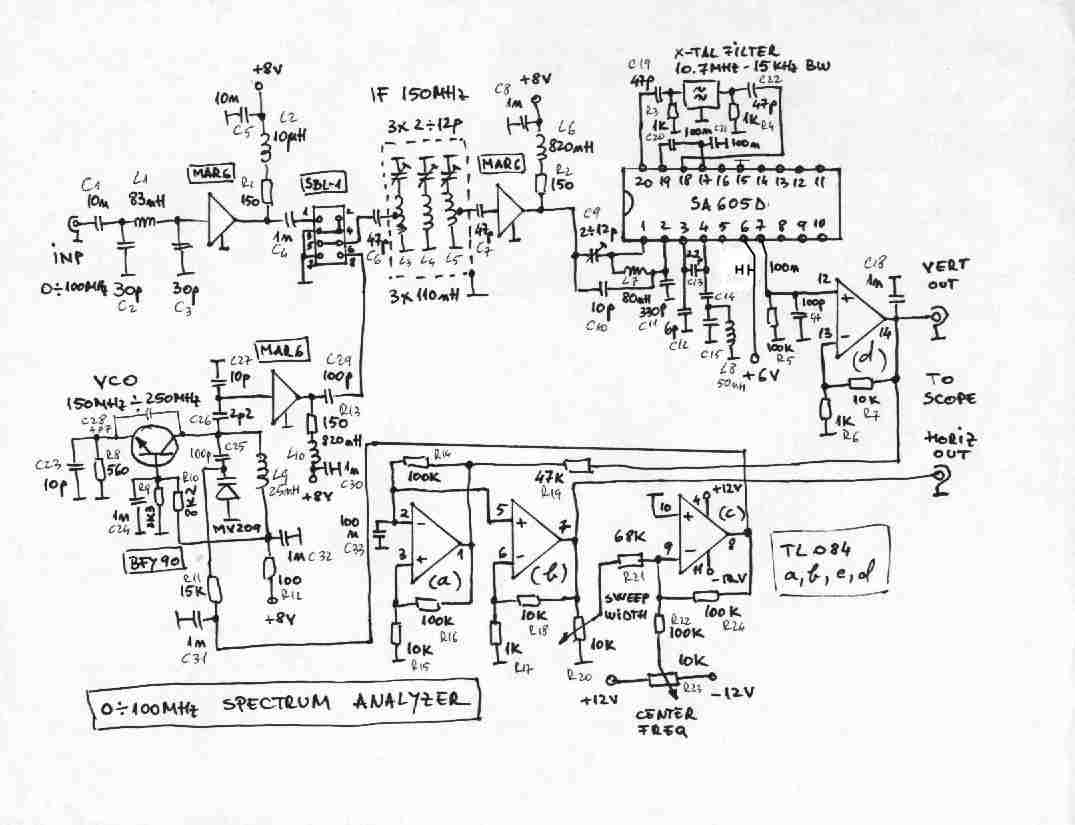 X-TAL FILTER
10.7MHZ - 15KHZ BW
C19
47p
C22
47p
R3
1K
100m
C21
1K
R4
C20
100m
+8V
10m
C5
L2
10µH
R1
150
C8
1m
+8V
L6
820mH
R2
150
IF 150MHz
3x 2÷12p
MAR6
SBL-1
MAR6
20 19 18 17 16 15 14 13 12 11
SA605D
1 2 3 4 5 6 7 8 9 10
C1
10m
L1
83mH
INP
0÷100MHz
30p
C2
30p
C3
1m
C4
47p
C6
L3 L4 L5
3x 110mH
47p
C7
C9
2÷12p
L7
80mH
10p
C10
330p
C11
C13
6p
C12
C14
C15
L8
50mH
+6V
100m
100K
R5
100p
12
13
14
(d)
C18
1m
VERT
OUT
1K
R6
10K
R7
TO
SCOPE
HORIZ
OUT
VCO
150MHz ÷ 250MHz
C28
C27
10p
C26
2p2
MAR6
C29
100p
R13
150
820mH
L10
1m
C30
+8V
C23
10p
R8
560
100p
C25
L9
25mH
R9
R10
1m
C24
MV209
BFY90
1m C32
100
R12
+8V
R11
15K
1m
C31
R14
100K
100
m
C33
2
3
1
(a)
100K
R16
10K
R15
5
6
7
(b)
10K
R18
1K
R17
47K
R19
68K
R21
SWEEP
WIDTH
10K
R20
+12V
10
4
(c)
9
8
11
-12V
100K
R24
R22
100K
10K
R23
+12V
-12V
CENTER
FREQ
TL084
a, b, c, d
0÷100MHz SPECTRUM ANALYZER